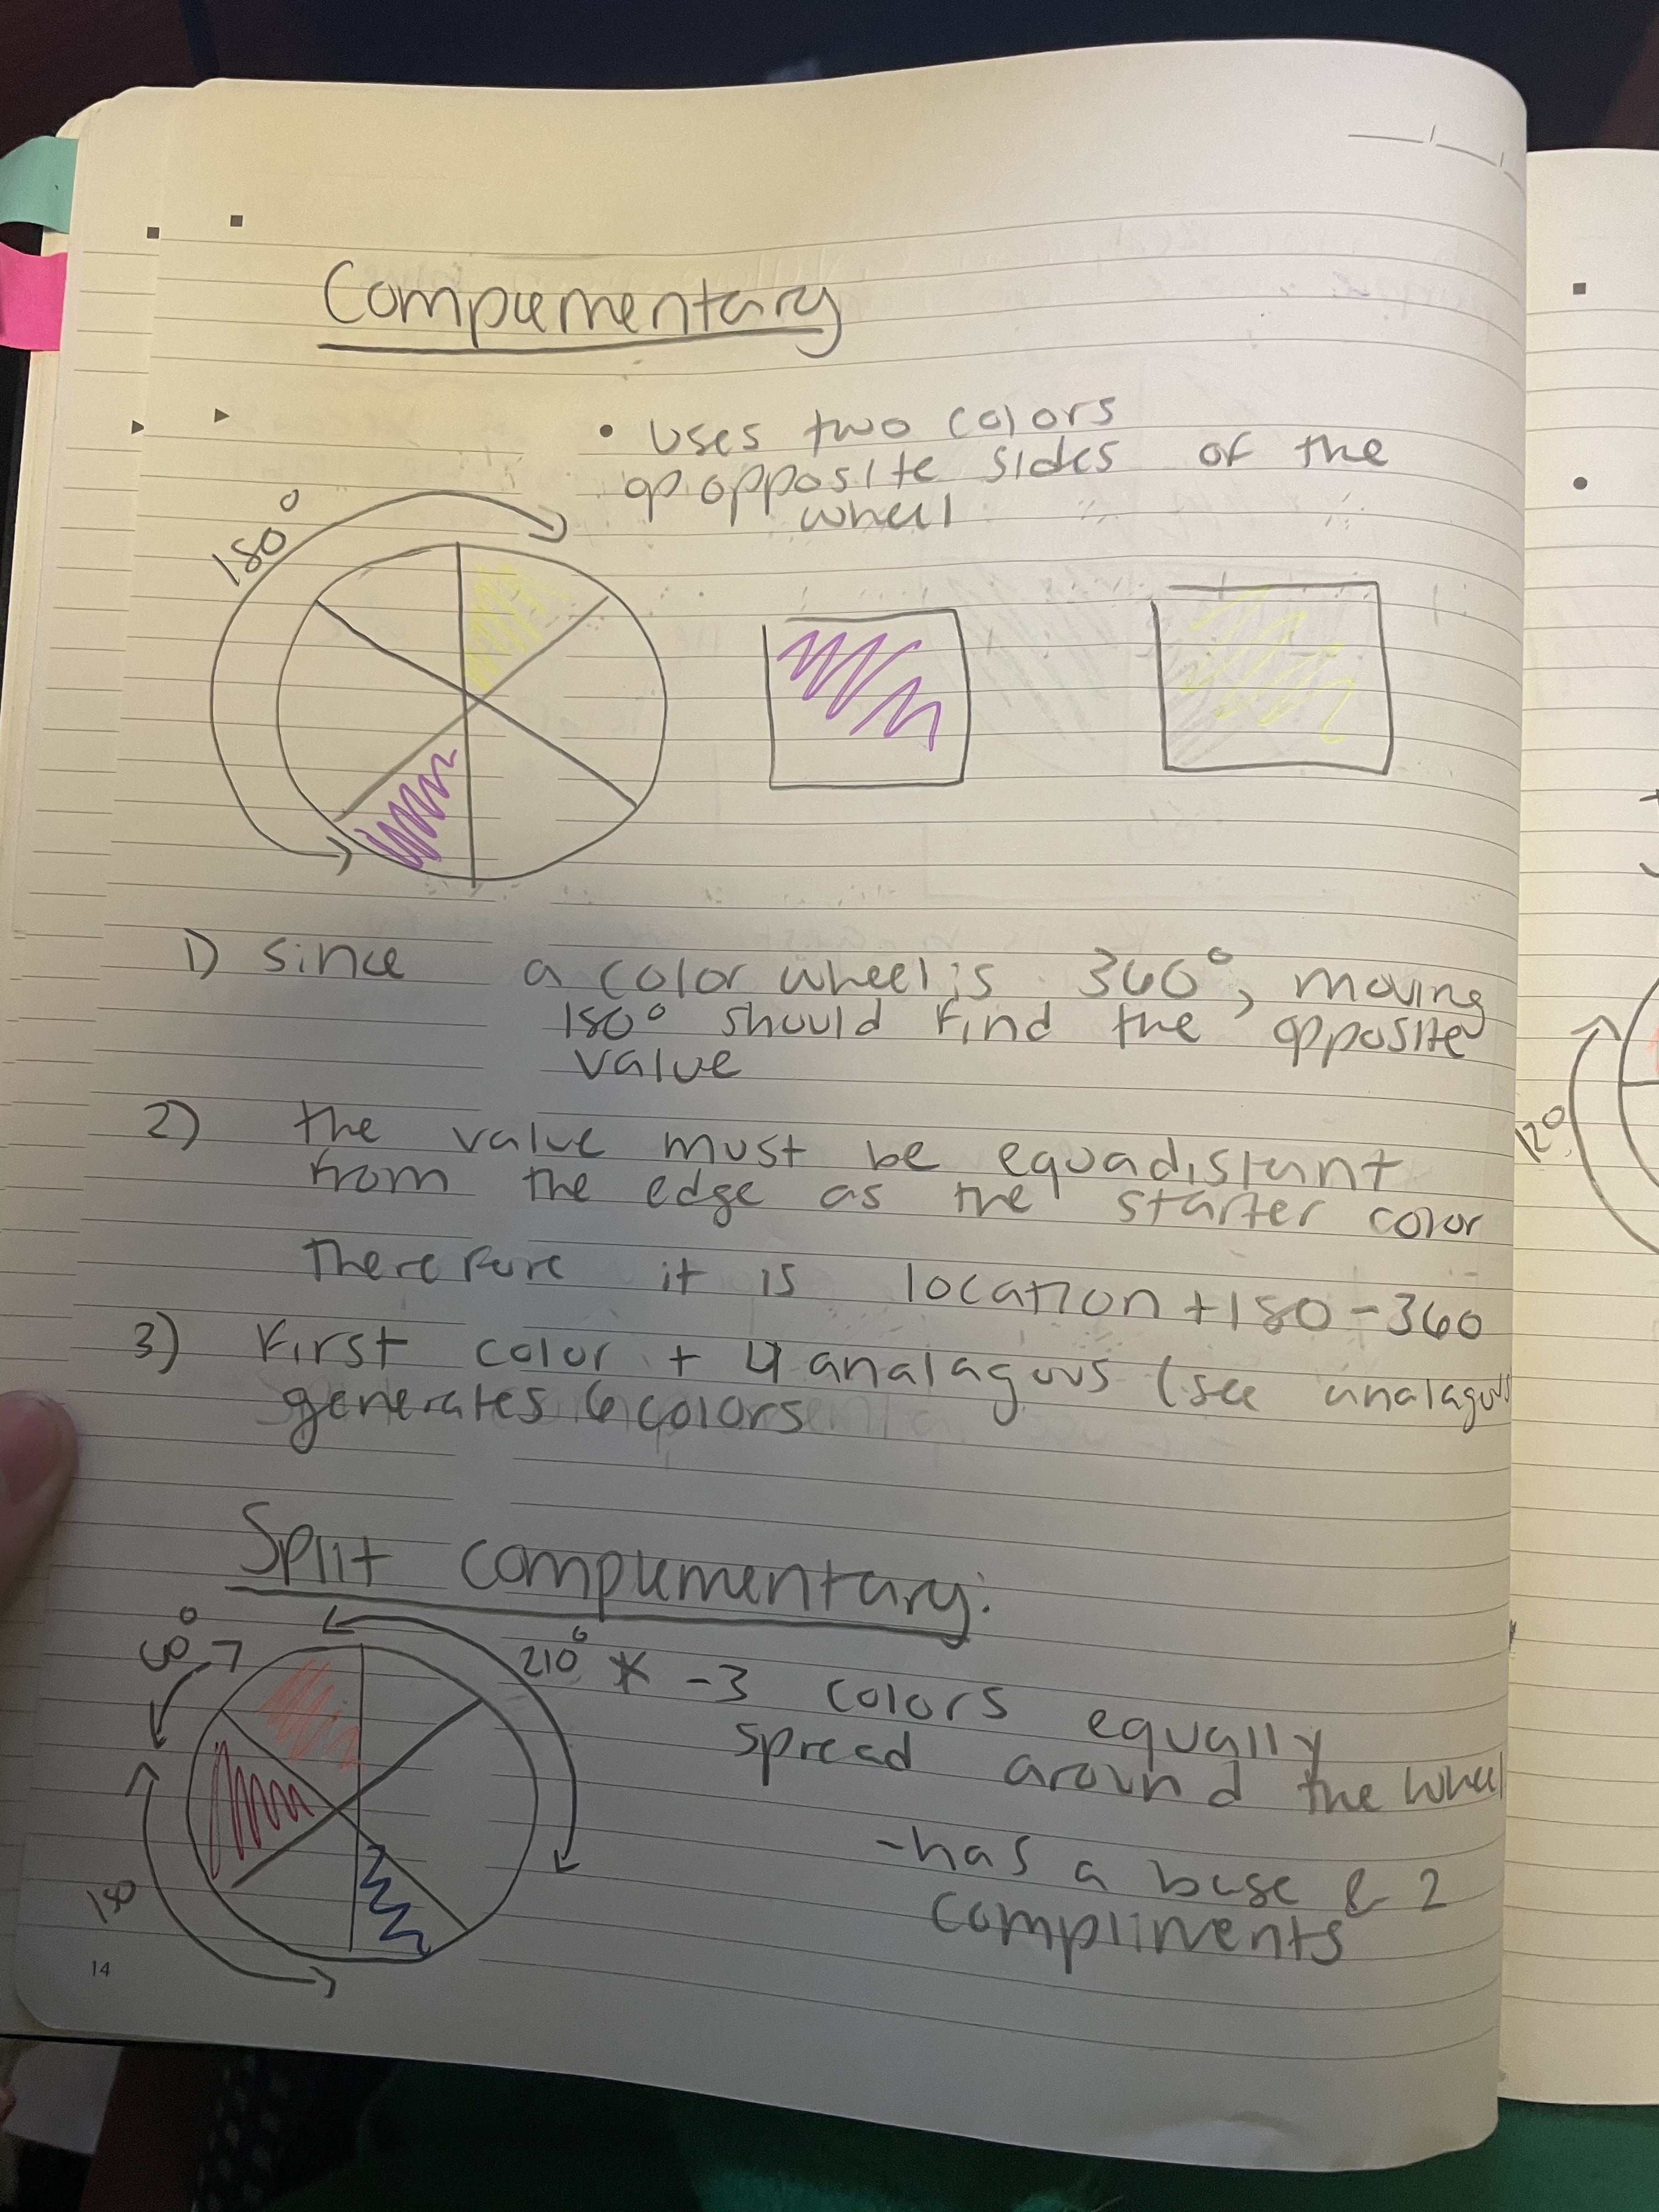 Complementary
• uses two colors
opposite sides of the
wheel
180°
1) since a color wheel is 360°, moving
180° should find the opposite
value
2) the value must be equadistant
from the edge as the starter color
therefore it is location +180-360
3) First color + 4 analagous (see analagous
generates 6 colors
Split complementary:
60°
210° * -3 colors equally
spread around the wheel
-has a base & 2
compliments
150
14
120